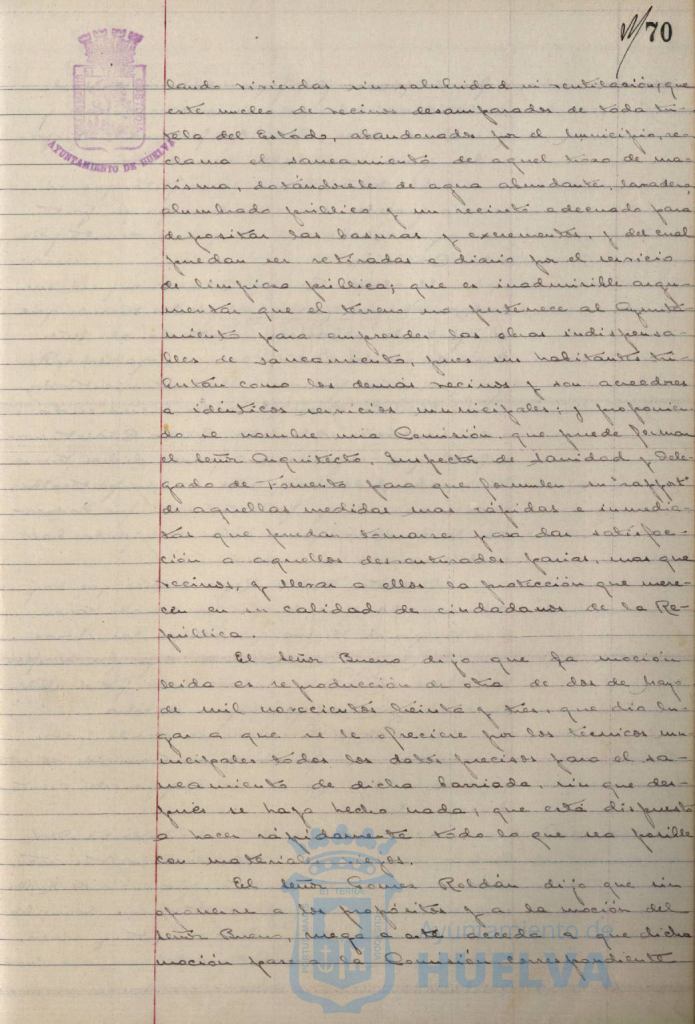 70
AYUNTAMIENTO DE HUELVA
viviendas sin salubridad ni ventilación; que
este nucleo de vecinos desamparados de toda tu-
tela del Estado, abandonados por el Municipio, re-
clama el saneamiento de aquel trozo de ma-
risma, dotándosele de agua abundante, lavadero,
alumbrado público y un recinto adecuado para
depositar las basuras y excrementos, y del cual
puedan ser retiradas a diario por el servicio
de limpieza pública; que es inadmisible argu-
mentar que el terreno no pertenece al Ayunta-
miento para emprender las obras indispensa-
bles de saneamiento, pues sus habitantes tri-
butan como los demás vecinos y son acreedores
a idénticos servicios municipales; y proponien-
do se nombre una Comisión que puede formar
el señor Arquitecto, Inspector de Sanidad y Dele-
gado de Fomento para que formulen un "rapport"
de aquellas medidas mas rápidas e inmedia-
tas que puedan tomarse para dar satisfac-
ción a aquellos desventurados parias, mas que
vecinos, y llevar a ellos la protección que mere-
cen en su calidad de ciudadanos de la Re-
pública.
El señor Bueno dijo que la moción
leida es reproducción de otra de dos de Mayo
de mil novecientos treinta y tres, que dió lu-
gar a que se le ofreciere por los técnicos mu-
nicipales todos los datos precisos para el sa-
neamiento de dicha barriada, sin que des-
pués se haya hecho nada; que está dispuesto
a hacer rápidamente todo lo que sea posible
con materiales viejos.
El señor Gomez Roldán dijo que sin
oponerse a los propósitos y a la moción del
señor Bueno, ruega a este acceda a que dicha
moción pase a la Comisión correspondiente
Ayuntamiento de
HUELVA